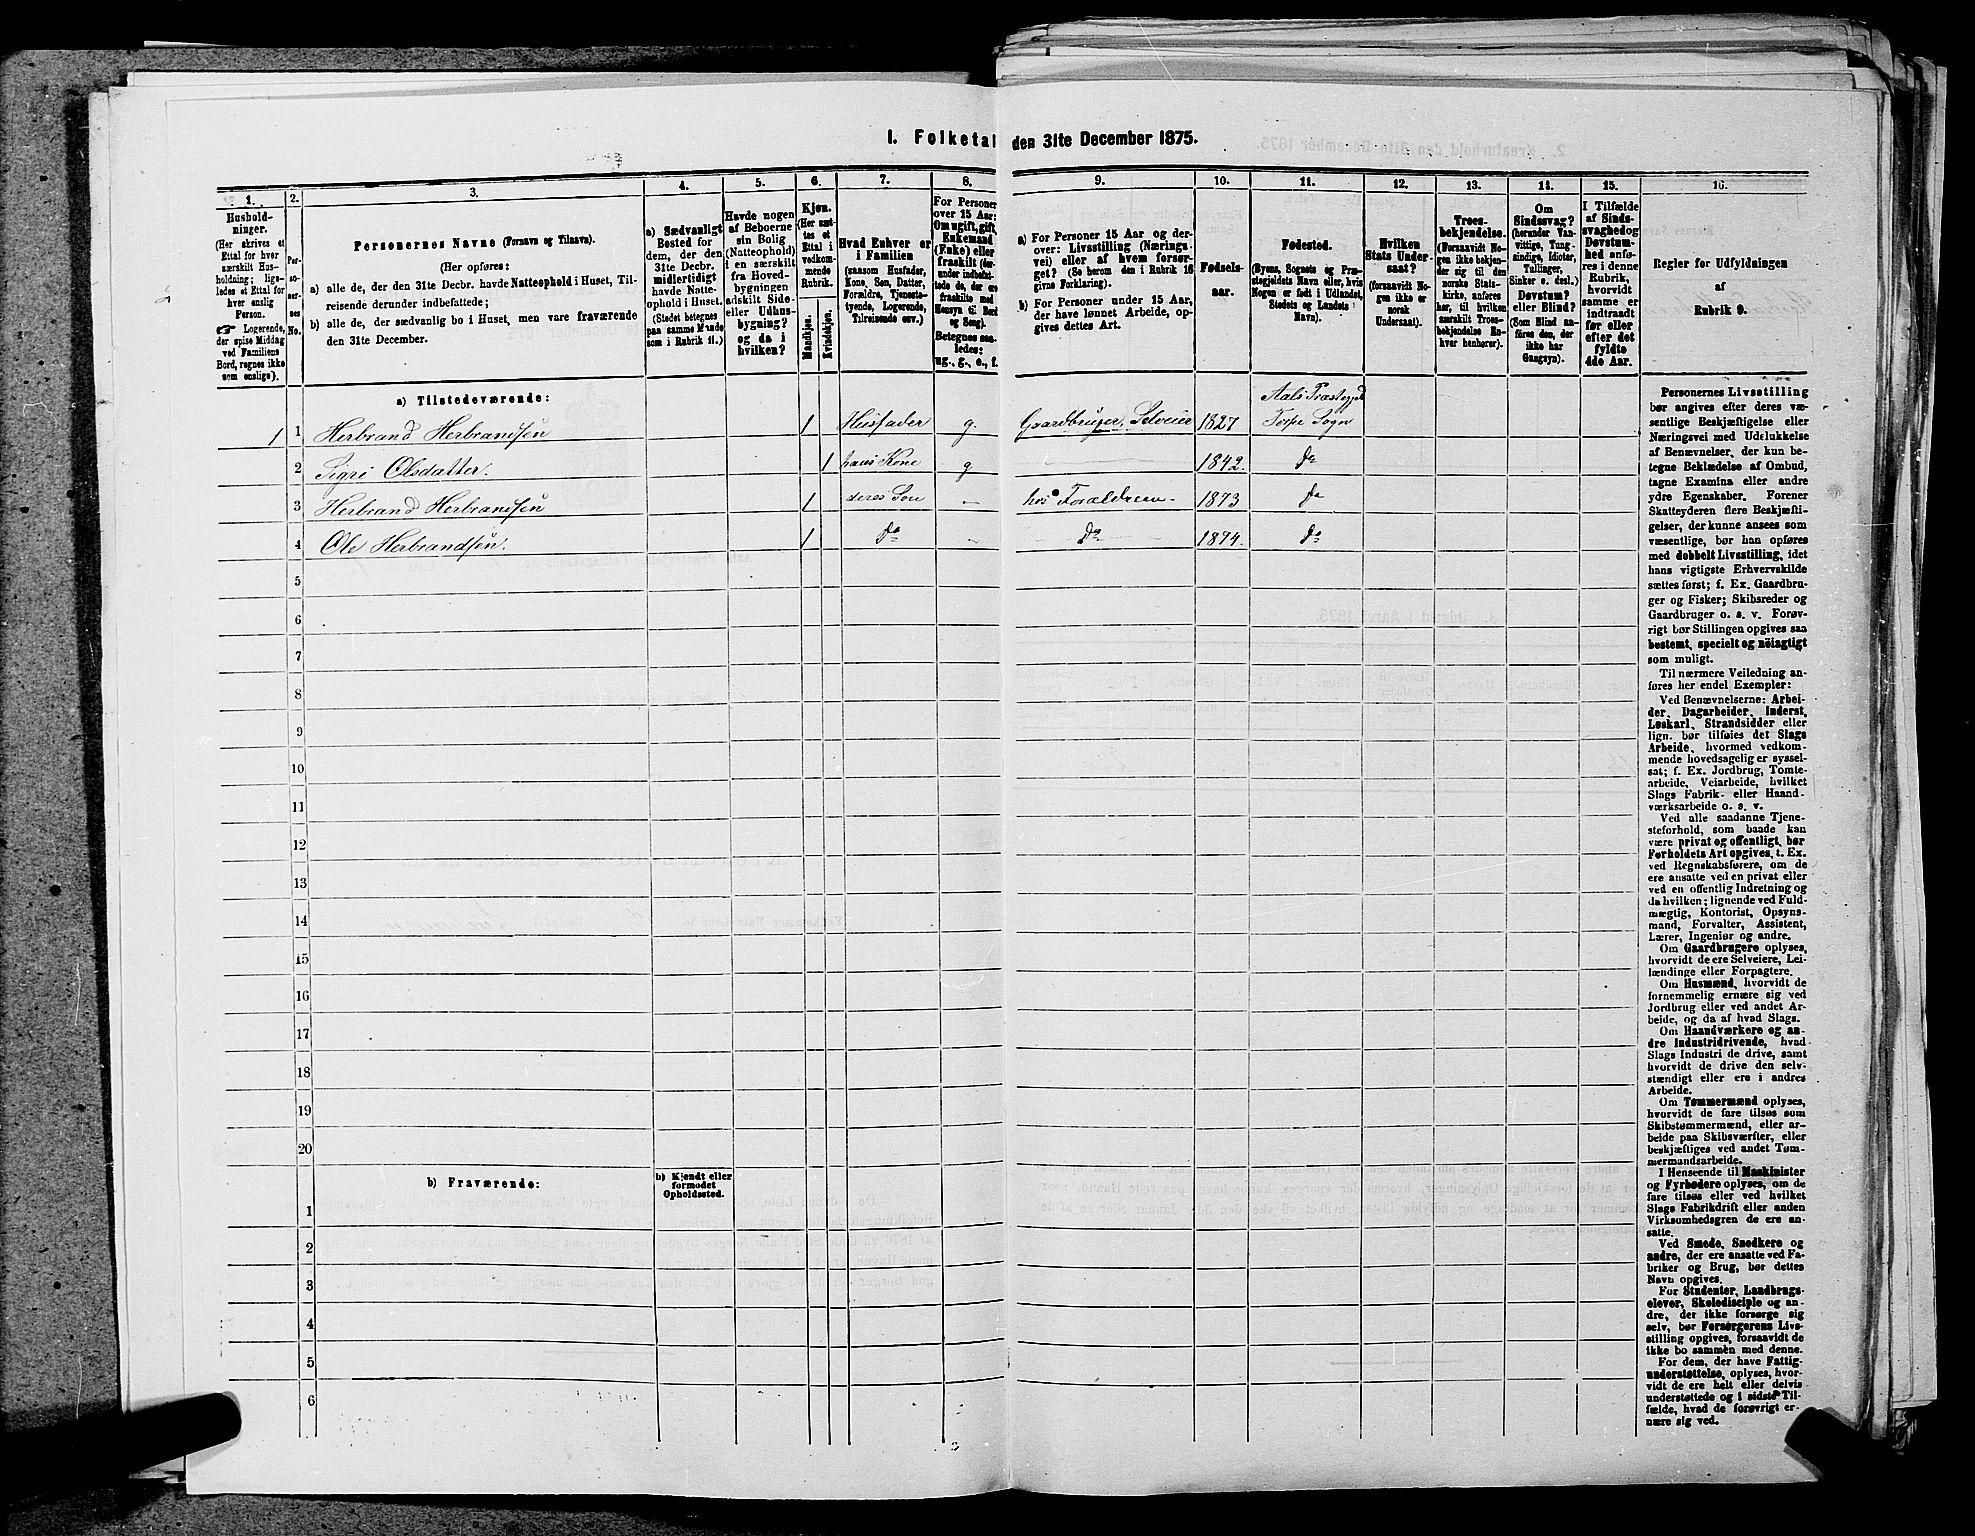 I. Folketal den 31te December 1875.
1.
Hushold-
ninger.
(Her skrives et
Ettal for hver
særskilt Hus-
holdning; lige-
ledes et Ettal for
hver enslig
Person.
☞ Logerende,
der spise Middag
ved Familiens
Bord, regnes ikke
som enslige).
2.
Per-
so-
ner-
nes
No.
3.
Personernes Navne (Fornavn og Tilnavn).
(Her opføres:
a) alle de, der den 31te Decbr. havde Natteophold i Huset, Til-
reisende derunder indbefattede;
b) alle de, der sædvanlig bo i Huset, men vare fraværende
den 31te December.
4.
a) Sædvanligt
Bosted for
dem, der den
31te Decbr.
midlertidigt
havde Natte-
ophold i Huset.
(Stedet betegnes
paa samme Maade
som i Rubrik 11.)
5.
Havde nogen
af Beboerne
sin Bolig
(Natteophold)
i en særskilt
fra Hoved-
bygningen
adskilt Side-
eller Udhus-
bygning?
og da i
hvilken?
6.
Kjøn.
(Her sæt-
tes et
Ettal i
vedkom-
mende
Rubrik.
Mandkjøn.
Kvindekjøn.
7.
Hvad Enhver er
i Familien
(saasom Husfader,
Kone, Søn, Datter,
Forældre, Tjeneste-
tyende, Logerende,
Tilreisende osv.)
8.
For Personer
over 15 Aar:
Om ugift, gift,
Enkemand
(Enke) eller
fraskilt (der-
under indbefat-
tede de, der ere
fraskilte med
Hensyn til Bord
og Seng).
Betegnes saa-
ledes:
ug., g., e., f.
9.
a) For Personer 15 Aar og der-
over: Livsstilling (Nærings-
vei) eller af hvem forsør-
get? (Se herom den i Rubrik 16
givne Forklaring).
b) For Personer under 15 Aar,
der have lønnet Arbeide, op-
gives dettes Art.
10.
Fødsels-
aar.
11.
Fødested.
(Byens, Sognets og Præ-
stegjeldets Navn eller, hvis
Nogen er født i Udlandet,
Stedets og Landets
Navn).
12.
Hvilken
Stats Under-
saat?
(forsaavidt No-
gen ikke er
norsk
Undersaat).
13.
Troes-
bekjendelse.
(Forsaavidt No-
gen ikke bekjen-
der sig til den
norske Stats-
kirke, anføres
her, til hvilken
særskilt Troes-
bekjendelse En-
hver henhører).
14.
Om
Sindssvag?
(herunder Van-
vittige, Tung-
sindige, Idioter,
Tullinger,
Sinker o. desl.)
Døvstum?
eller Blind?
(Som Blind an-
føres den, der
ikke har
Gangsyn).
15.
I Tilfælde
af Sinds-
svaghed og
Døvstum-
hed anfø-
res i denne
Rubrik,
hvorvidt
samme er
indtraadt
før eller
efter det
fyldte
4de Aar.
16.
Regler for Udfyldningen
af
Rubrik 9.
a) Tilstedeværende:
Aals Præstegjeld
1 1 Herbrand Herbrandsen 1 Husfader g. Gaardbruger, Selveier 1827 Torpe Sogn
2 Sigri Olsdatter. 1 hans Kone g 1842. do
3 Herbrand Herbrandsen 1 deres Søn – hos Forældrene – 1873 do
4 Ole Herbrandsen. 1 do – do 1874. do
5
6
7
8
9
10
11
12
13
14
15
16
17
18
19
20
b) Fraværende:
b) Kjendt eller
formodet
Opholdssted.
1
2
3
4
5
6
Personernes Livsstilling
bør angives efter deres væ-
sentlige Beskjæftigelse eller
Næringsvei med Udelukkelse
af Benævnelser, der kun be-
tegne Beklædelse af Ombud,
tagne Examina eller andre
ydre Egenskaber. Forener
Skatteyderen flere Beskjæfti-
gelser, der kunne ansees som
væsentlige, bør han opføres
med dobbelt Livsstilling, idet
hans vigtigste Erhvervskilde
sættes først; f. Ex. Gaardbru-
ger og Fisker; Skibsreder og
Gaardbruger o. s. v. Forøv-
rigt bør Stillingen opgives saa
bestemt, specielt og nöiagtigt
som muligt.
Til nærmere Veiledning an-
føres her endel Exempler:
Ved Benævnelserne: Arbei-
der, Dagarbeider, Inderst,
Løskarl, Strandsidder eller
lign. bør tilføies det Slags
Arbeide, hvormed vedkom-
mende hovedsagelig er syssel-
sat; f. Ex. Jordbrug, Tomte-
arbeide, Veiarbeide, hvilket
Slags Fabrik- eller Haand-
værksarbeide o. s. v.
Ved alle saadanne Tjene-
steforhold, som baade kan
være privat og offentligt, bør
Forholdets Art opgives, t. Ex.
ved Regnskabsførere, om de
ere ansatte ved en privat eller
ved en offentlig Indretning og
da hvilken; lignende ved Fuld-
mægtig, Kontorist, Opsyns-
mand, Forvalter, Assistent,
Lærer, Ingeniør og andre.
Om Gaardbrugere oplyses,
hvorvidt de ere Selveiere, Lei-
lændinge eller Forpagtere.
Om Husmænd, hvorvidt de
fornemmelig ernære sig ved
Jordbrug eller ved andet Ar-
beide, og da af hvad Slags.
Om Haandværkere og an-
dre Industridrivende, hvad
Slags Industri de drive, samt
hvorvidt de drive den selv-
stændigt eller ere i andres
Arbeide.
Om Tømmermænd oplyses,
hvorvidt de fare tilsøs som
Skibstømmermænd, eller ar-
beide paa Skibsværfter, eller
beskjæftiges ved andet Tøm-
mermandsarbeide.
I Henseende til Maskinister
og Fyrbødere oplyses, om de
fare tilsøs eller ved hvilket
Slags Fabrikdrift eller anden
Virksomhedsgren de ere an-
satte.
Ved Smede, Snedkere og
andre, der ere ansatte ved Fa-
briker og Brug, bør dettes
Navn opgives.
For Studenter, Landbrugs-
elever, Skoledisciple og an-
dre, der ikke forsørge sig
selv, bør Forsørgerens Livs-
stilling opgives, forsaavidt de
ikke bo sammen med denne.
For dem, der have Fattig-
understøttelse, oplyses, hvor-
vidt de ere helt eller delvis
understøttede og i sidste Til-
fælde, hvad de forøvrigt er-
nære sig ved.